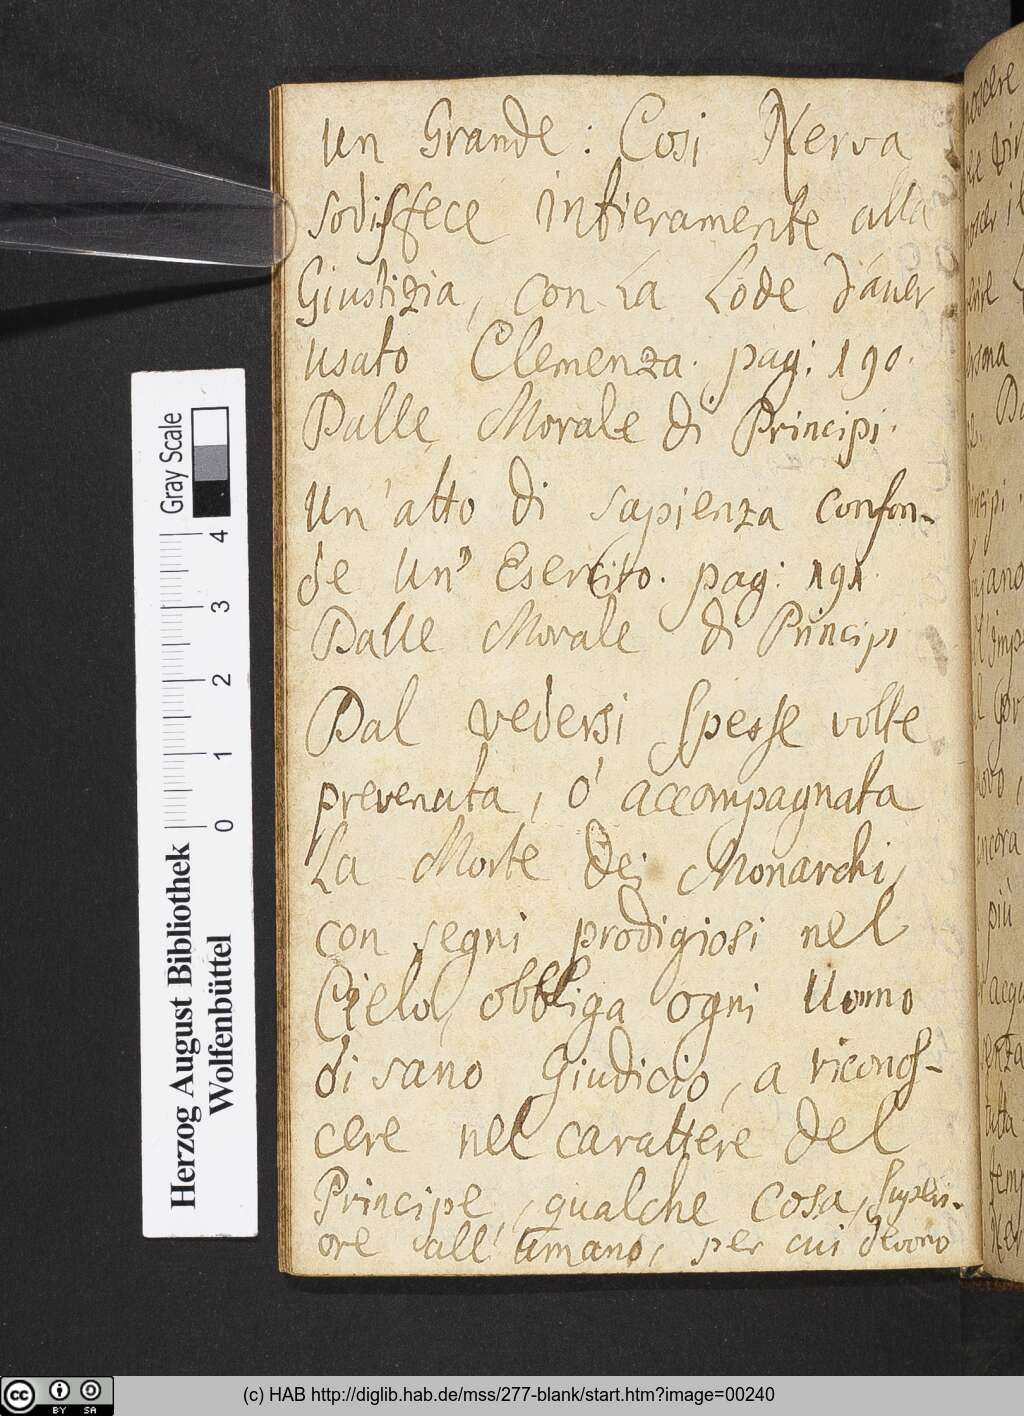 un Grande: Cosi Nerva
sodisfece intieramente alla
Giustizia, con La Lode d'aver
usato Clemenza. pag: 190.
Dalle Morale di Principi.
Un'atto di sapienza confon-
de un' Esercito. pag: 191.
Dalle Morale di Principi
Dal vedersi spesse volte
prevenuta, ò accompagnata
La Morte dei Monarchi,
con segni prodigiosi nel
Cielo, obbliga ogni Uomo
di sano Giudicio, a riconos-
cere nel carattere del
Principe, qualche cosa, superi-
ore all' umano, per cui devono
Gray Scale
0 1 2 3 4
Herzog August Bibliothek
Wolfenbüttel
cc BY SA
(c) HAB http://diglib.hab.de/mss/277-blank/start.htm?image=00240